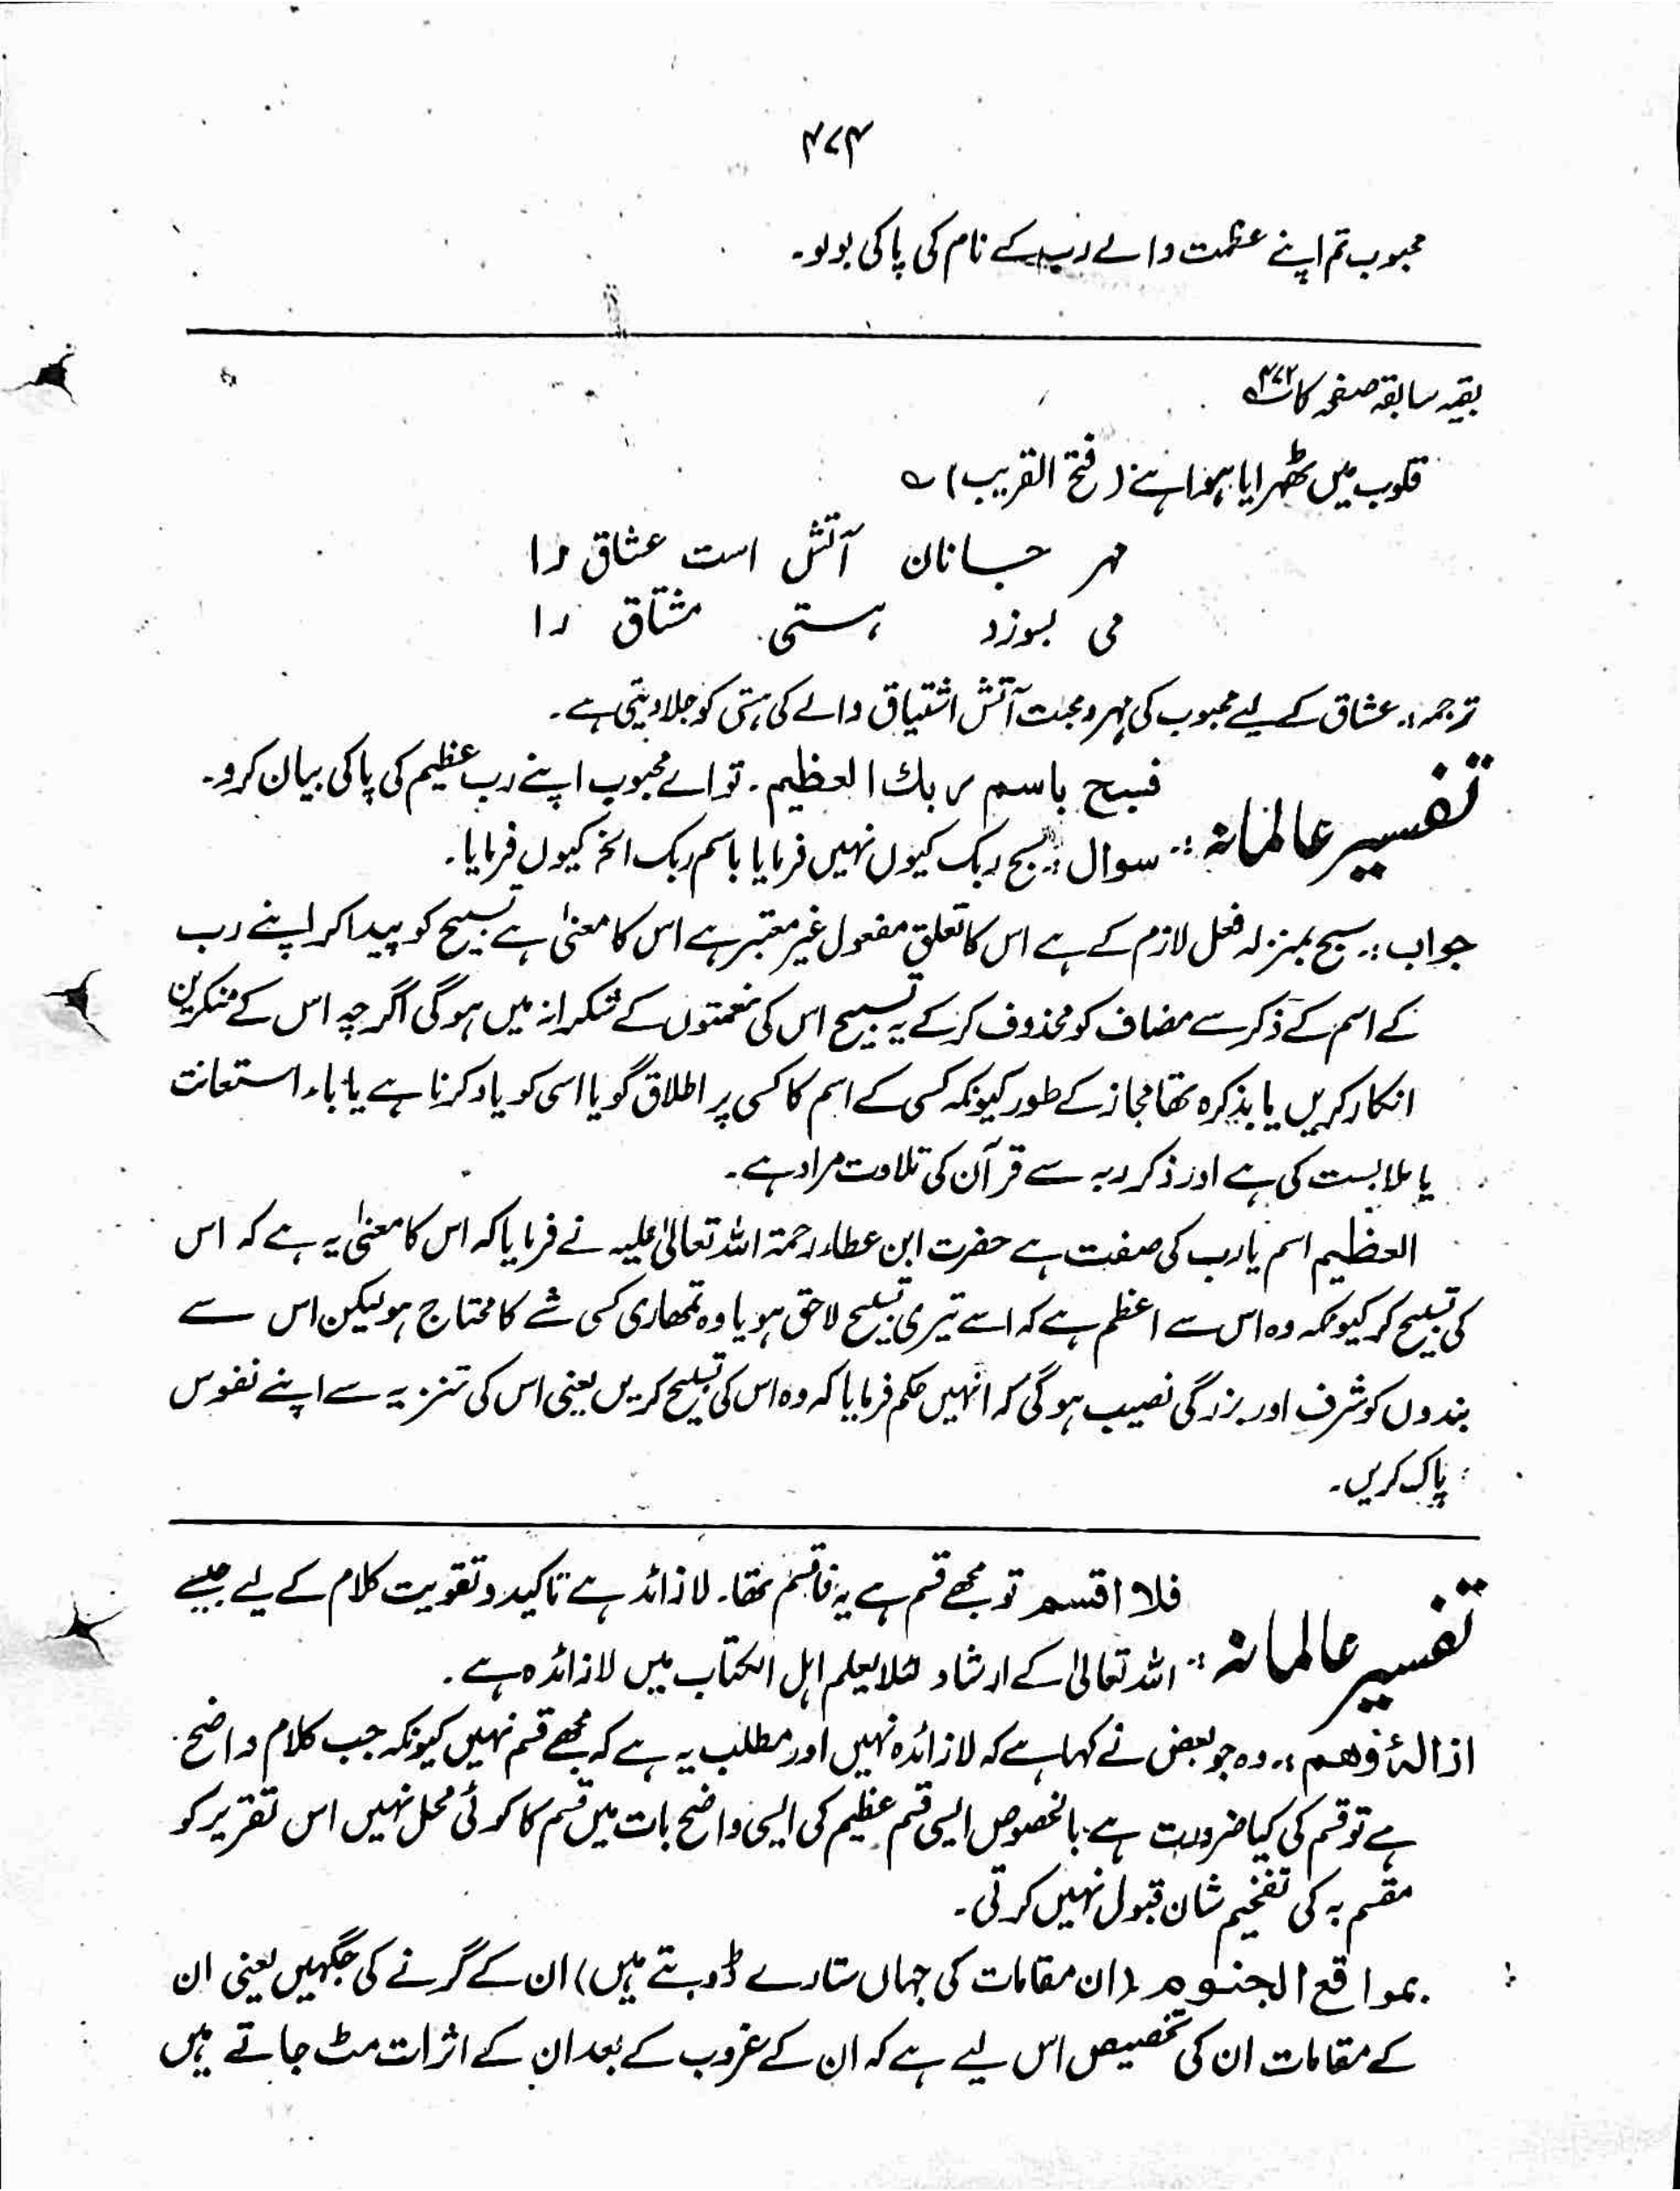 ۴۷۴
محبوب تم اپنے عظمت والے رب کے نام کی پاکی بولو۔
بقیہ سابقہ صفحہ کا ۴۷۲
قلوب میں ٹھہرایا ہوا ہے (فتح القریب) ؎
مہر جاناں آتش است عشاق را
می بسوزد ہستی مشتاق را
ترجمہ:۔ عشاق کے لیے محبوب کی مہر و محبت آتش اشتیاق والے کی ہستی کو جلا دیتی ہے۔
فسبح باسم ربك العظیم۔ تو اے محبوب اپنے رب عظیم کی پاکی بیان کرو۔
تفسیر عالمانہ:۔ سوال:۔ سبح ربک کیوں نہیں فرمایا باسم ربک الخ کیوں فرمایا۔
جواب:۔ سبح بمنزلہ فعل لازم کے ہے اس کا تعلق مفعول غیر معتبر ہے اس کا معنیٰ ہے تسبیح کو پیدا کر اپنے رب
کے اسم کے ذکر سے مضاف کو محذوف کر کے یہ تسبیح اس کی نعمتوں کے شکرانہ میں ہوگی اگرچہ اس کے منکرین
انکار کریں یا بذکرہ تھا مجاز کے طور کیونکہ کسی کے اسم کا کسی پر اطلاق گویا اسی کو یاد کرنا ہے یا باء استعانت
یا ملابست کی ہے اور ذکر ربہ سے قرآن کی تلاوت مراد ہے۔
العظیم اسم یا رب کی صفت ہے حضرت ابن عطاء رحمۃ اللہ تعالیٰ علیہ نے فرمایا کہ اس کا معنیٰ یہ ہے کہ اس
کی تسبیح کر کیونکہ وہ اس سے اعظم ہے کہ اسے تیری تسبیح لاحق ہو یا وہ تمھاری کسی شے کا محتاج ہو لیکن اس سے
بندوں کو شرف اور بزرگی نصیب ہوگی کہ انہیں حکم فرمایا کہ وہ اس کی تسبیح کریں یعنی اس کی تنزیہ سے اپنے نفوس
پاک کریں۔
فلا اقسم تو مجھے قسم ہے یہ فاقسم تھا۔ لا زائد ہے تاکید و تقویت کلام کے لیے جیسے
تفسیر عالمانہ:۔ اللہ تعالیٰ کے ارشاد لئلا یعلم اہل الکتاب میں لا زائدہ ہے۔
ازالۂ وھم:۔ وہ جو بعض نے کہا ہے کہ لا زائدہ نہیں اور مطلب یہ ہے کہ مجھے قسم نہیں کیونکہ جب کلام واضح
ہے تو قسم کی کیا ضرورت ہے بالخصوص ایسی قسم عظیم کی ایسی واضح بات میں قسم کا کوئی محل نہیں اس تقریر کو
مقسم بہ کی تفخیم شان قبول نہیں کرتی۔
بمواقع النجوم (ان مقامات کی جہاں ستارے ڈوبتے ہیں) ان کے گرنے کی جگہیں یعنی ان
کے مقامات ان کی تخصیص اس لیے ہے کہ ان کے غروب کے بعد ان کے اثرات مٹ جاتے ہیں